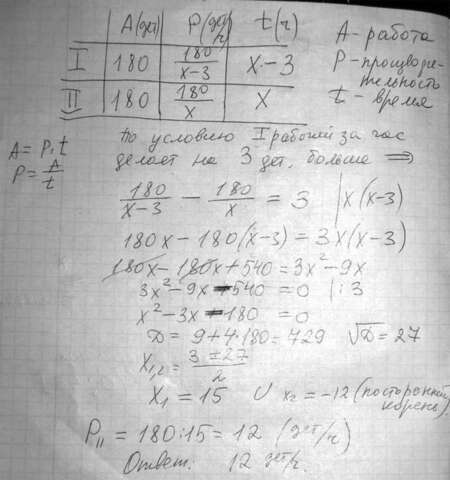 A(дет) P(дет/ч) t(ч)
I 180 180/(x-3) x-3
II 180 180/x x
A-работа
P-производи-
тельность
t-время
A = P·t
P = A/t
По условию I рабочий за час
делает на 3 дет. больше ⇒
180/(x-3) - 180/x = 3 | x(x-3)
180x - 180(x-3) = 3x(x-3)
180x - 180x + 540 = 3x² - 9x
3x² - 9x - 540 = 0 |:3
x² - 3x - 180 = 0
D = 9+4·180 = 729 √D = 27
x₁,₂ = (3±27)/2
x₁ = 15 ∪ x₂ = -12 (посторонний
корень)
P_II = 180:15 = 12 (дет/ч)
Ответ: 12 дет/ч.